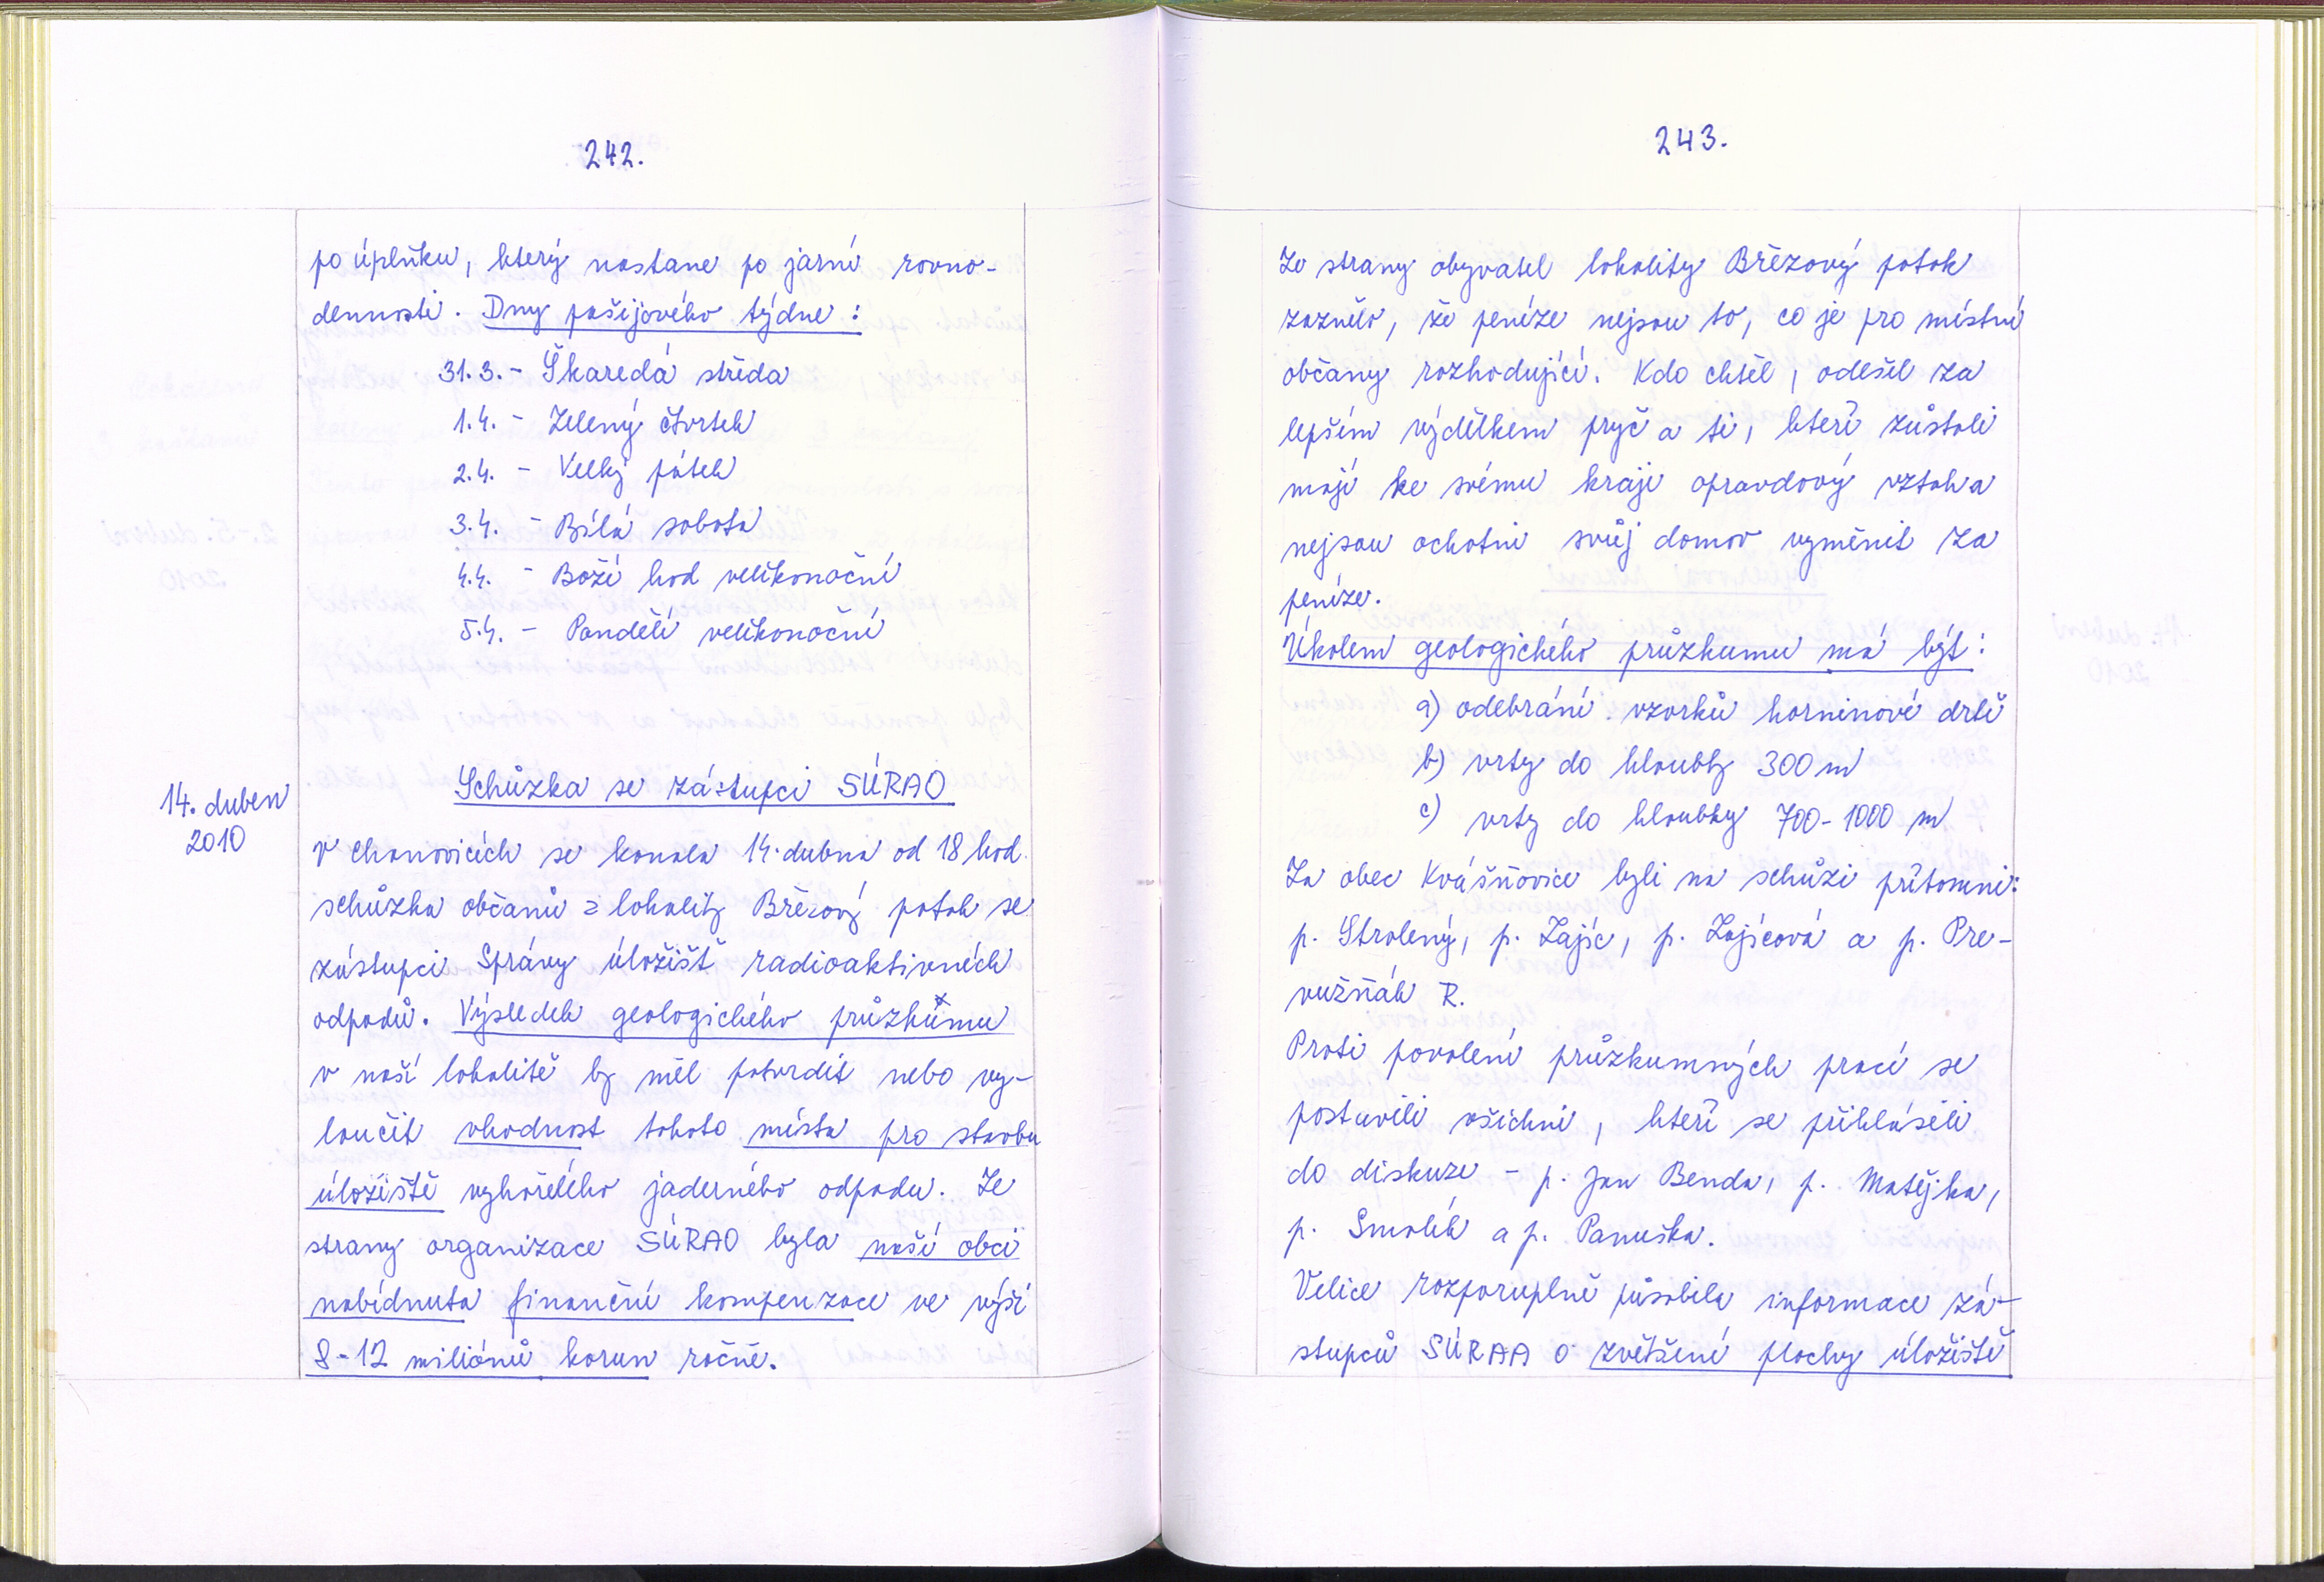 242.
po úplňku, který nastane po jarní rovno-
dennosti. Dny pašijového týdne:
31.3. - Škaredá středa
1.4. - Zelený čtvrtek
2.4. - Velký pátek
3.4. - Bílá sobota
4.4. - Boží hod velikonoční
5.4. - Pondělí velikonoční
14. duben
2010
Schůzka se zástupci SÚRAO
V Chanovicích se konala 14. dubna od 18 hod.
schůzka občanů z lokality Březový potok se
zástupci Správy úložišť radioaktivních
odpadů. Výsledek geologického průzkůmu
v naší lokalitě by měl potvrdit nebo vy-
loučit vhodnost tohoto místa pro stavbu
úložiště vyhořelého jaderného odpadu. Ze
strany organizace SÚRAO byla naší obci
nabídnuta finanční kompenzace ve výši
8-12 miliónů korun ročně.
243.
Ze strany obyvatel lokality Březový potok
zaznělo, že peníze nejsou to, co je pro místní
občany rozhodující. Kdo chtěl, odešel za
lepším výdělkem pryč a ti, kteří zůstali
mají ke svému kraji opravdový vztah a
nejsou ochotni svůj domov vyměnit za
peníze.
Úkolem geologického průzkumu má být:
a) odebrání vzorků horninové drtě
b) vrty do hloubky 300 m
c) vrty do hloubky 700-1000 m
Za obec Kvášňovice byli na schůzi přítomni:
p. Strolený, p. Zajíc, p. Zajícová a p. Pre-
vužňák R.
Proti povolení průzkumných prací se
postavili všichni, kteří se přihlásili
do diskuze - p. Jan Benda, p. Matějka,
p. Smolík a p. Panuška.
Velice rozporuplně působila informace zá-
stupců SÚRAA o zvětšení plochy úložiště